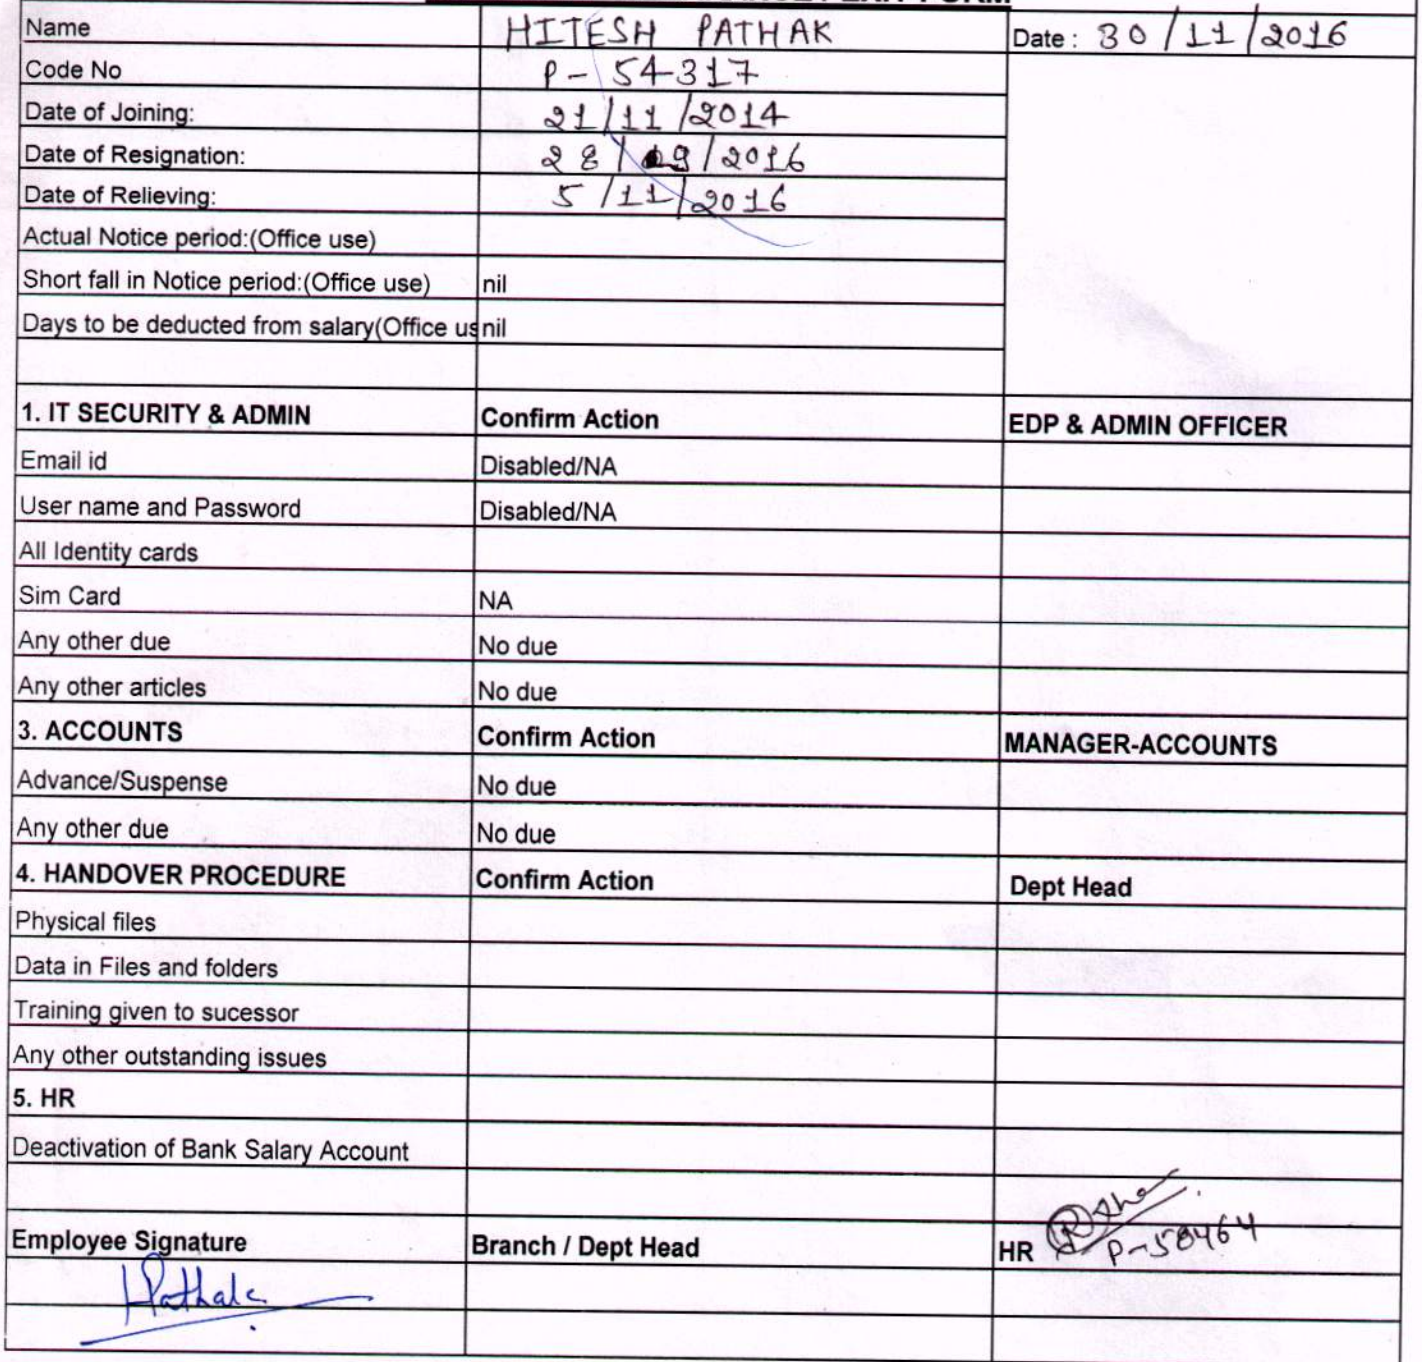 FORM
Name HITESH PATHAK Date : 30/11/2016
Code No P-54317
Date of Joining: 21/11/2014
Date of Resignation: 28/09/2016
Date of Relieving: 5/11/2016
Actual Notice period:(Office use)
Short fall in Notice period:(Office use) nil
Days to be deducted from salary(Office us nil
1. IT SECURITY & ADMIN Confirm Action EDP & ADMIN OFFICER
Email id Disabled/NA
User name and Password Disabled/NA
All Identity cards
Sim Card NA
Any other due No due
Any other articles No due
3. ACCOUNTS Confirm Action MANAGER-ACCOUNTS
Advance/Suspense No due
Any other due No due
4. HANDOVER PROCEDURE Confirm Action Dept Head
Physical files
Data in Files and folders
Training given to sucessor
Any other outstanding issues
5. HR
Deactivation of Bank Salary Account
Employee Signature Branch / Dept Head HR P-58464
HPathak